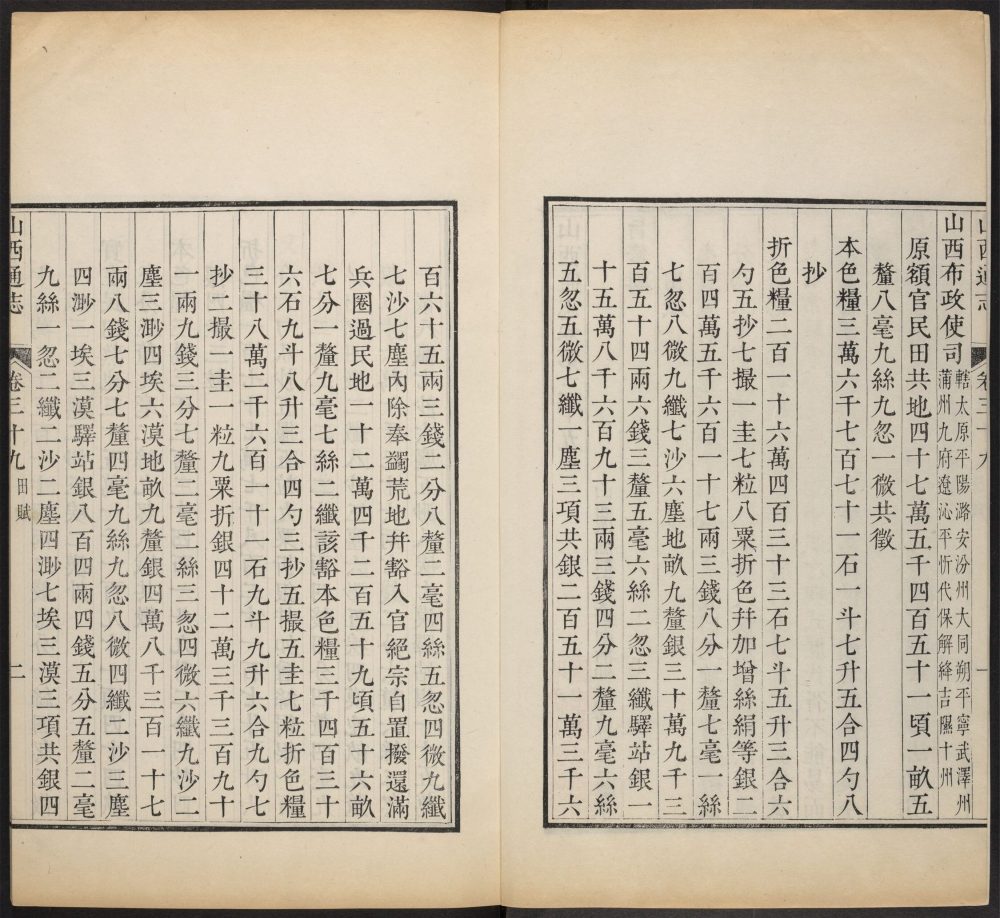 山西通志 卷三十九 一
山西布政使司轄太原平陽潞安汾州大同朔平寧武澤州
蒲州九府遼沁平忻代保解絳吉隰十州
原額官民田共地四十七萬五千四百五十一頃一畝五
釐八毫九絲九忽一微共徵
本色糧三萬六千七百七十一石一斗七升五合四勺八
抄
折色糧二百一十六萬四百三十三石七斗五升三合六
勺五抄七撮一圭七粒八粟折色幷加增絲絹等銀二
百四萬五千六百一十七兩三錢八分一釐七毫一絲
七忽八微九纖七沙六塵地畝九釐銀三十萬九千三
百五十四兩六錢三釐五毫六絲二忽三纖驛站銀一
十五萬八千六百九十三兩三錢四分二釐九毫六絲
五忽五微七纖一塵三項共銀二百五十一萬三千六
百六十五兩三錢二分八釐二毫四絲五忽四微九纖
七沙七塵內除奉蠲荒地幷豁入官絕宗自置撥還滿
兵圈過民地一十二萬四千二百五十九頃五十六畝
七分一釐九毫七絲二纖該豁本色糧三千四百三十
六石九斗八升三合四勺三抄五撮五圭七粒折色糧
三十八萬二千六百一十一石九斗九升六合九勺七
抄二撮一圭一粒九粟折銀四十二萬三千三百九十
一兩九錢三分七釐二毫二絲三忽四微六纖九沙二
塵三渺四埃六漠地畝九釐銀四萬八千三百一十七
兩八錢七分七釐四毫九絲九忽八微四纖二沙三塵
四渺一埃三漠驛站銀八百四兩四錢五分五釐二毫
九絲一忽二纖二沙二塵四渺七埃三漠三項共銀四
山西通志 卷三十九 田賦 二